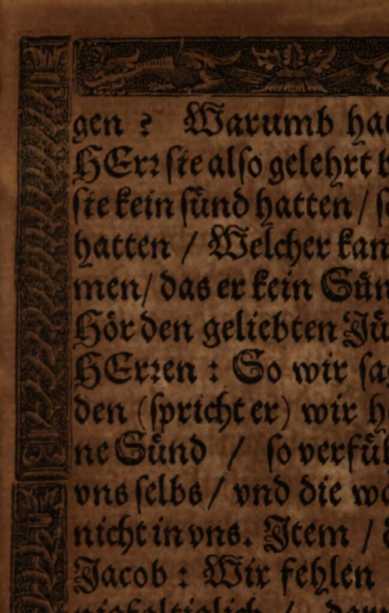 gen ? Warumb ha
HErꝛ sie also gelehrt
sie kein sünd hatten / s
hatten / Welcher kan
men / das er kein Sün
Hör den geliebten Jü
HErꝛen : So wir sa
den (spricht er) wir h
ne Sünd / so verfü
vns selbs / vnd die wa
nicht in vns. Item /
Jacob : Wir fehlen